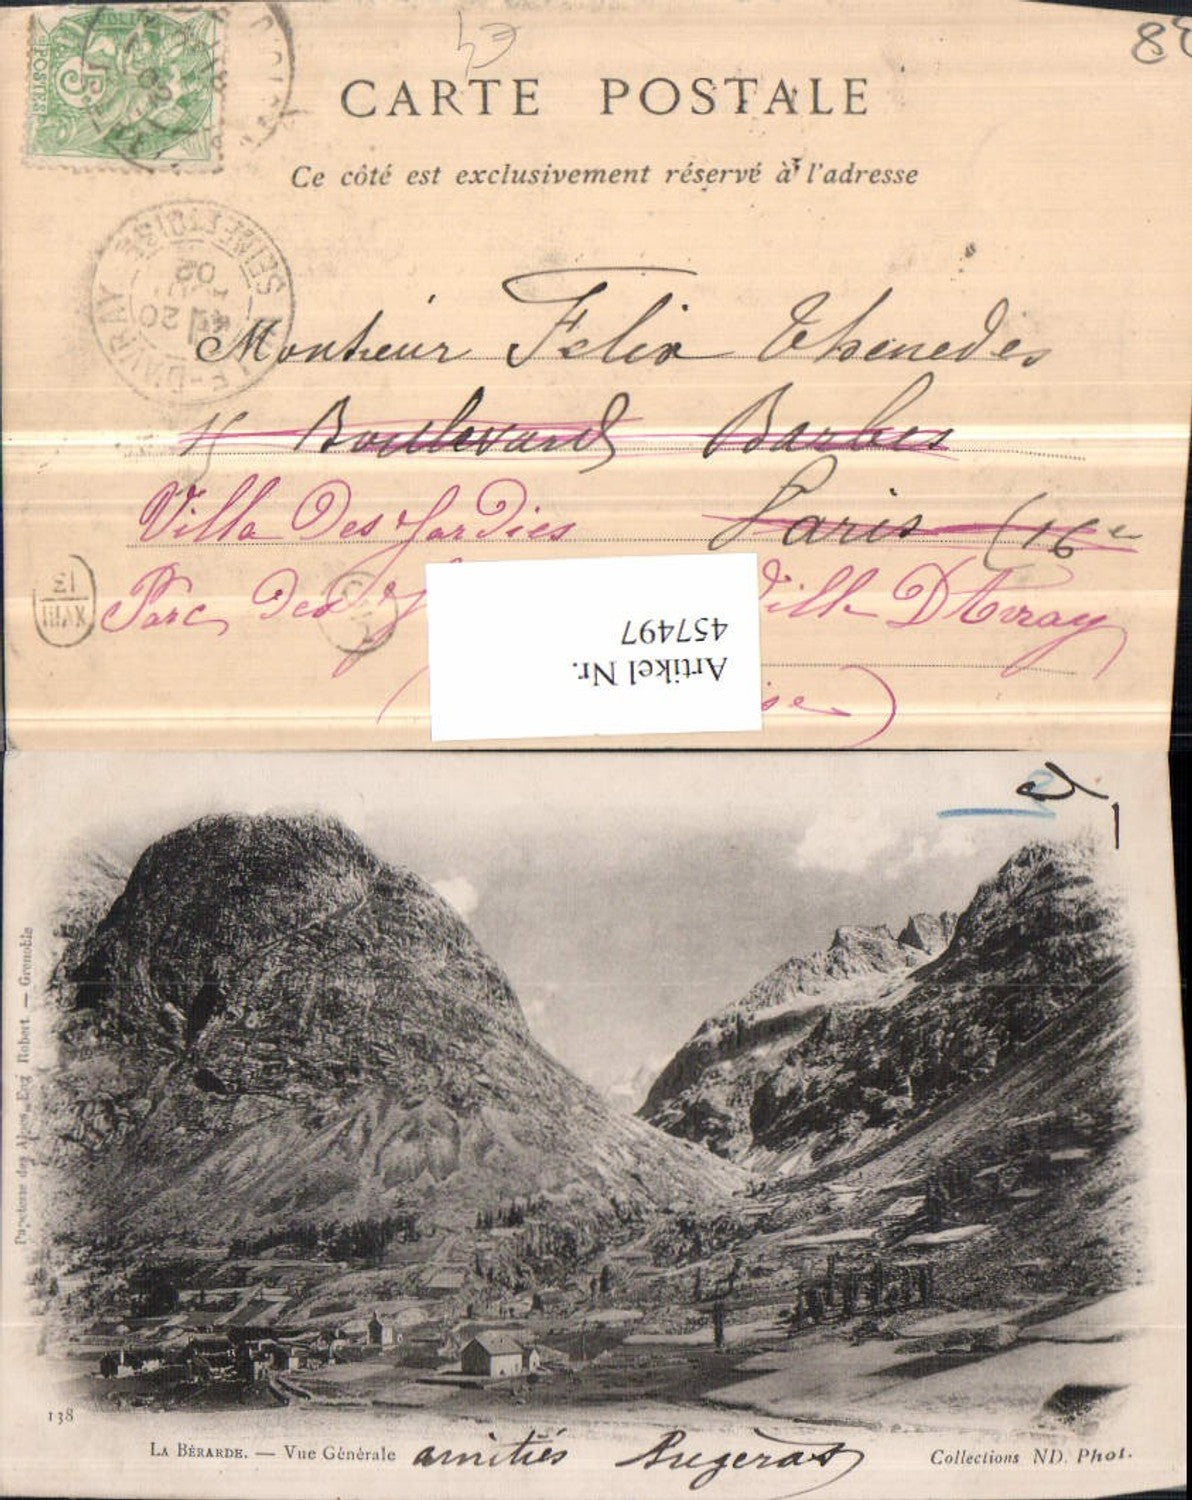 CARTE POSTALE
Ce côté est exclusivement réservé à l'adresse
POSTES
5
VILLE-D'AVRAY
SEINE-ET-OISE
20
02
Monsieur Felix Thenedes
15 Boulevard Barbes
Paris (16e
Villa Des Jardies
Parc des Ville D'Avray
XVIII
13
Artikel Nr.
457497
Papeterie des Alpes, Eug Robert. — Grenoble
138
LA BÉRARDE. — Vue Générale
amitiés Bugeras
Collections ND. Phot.